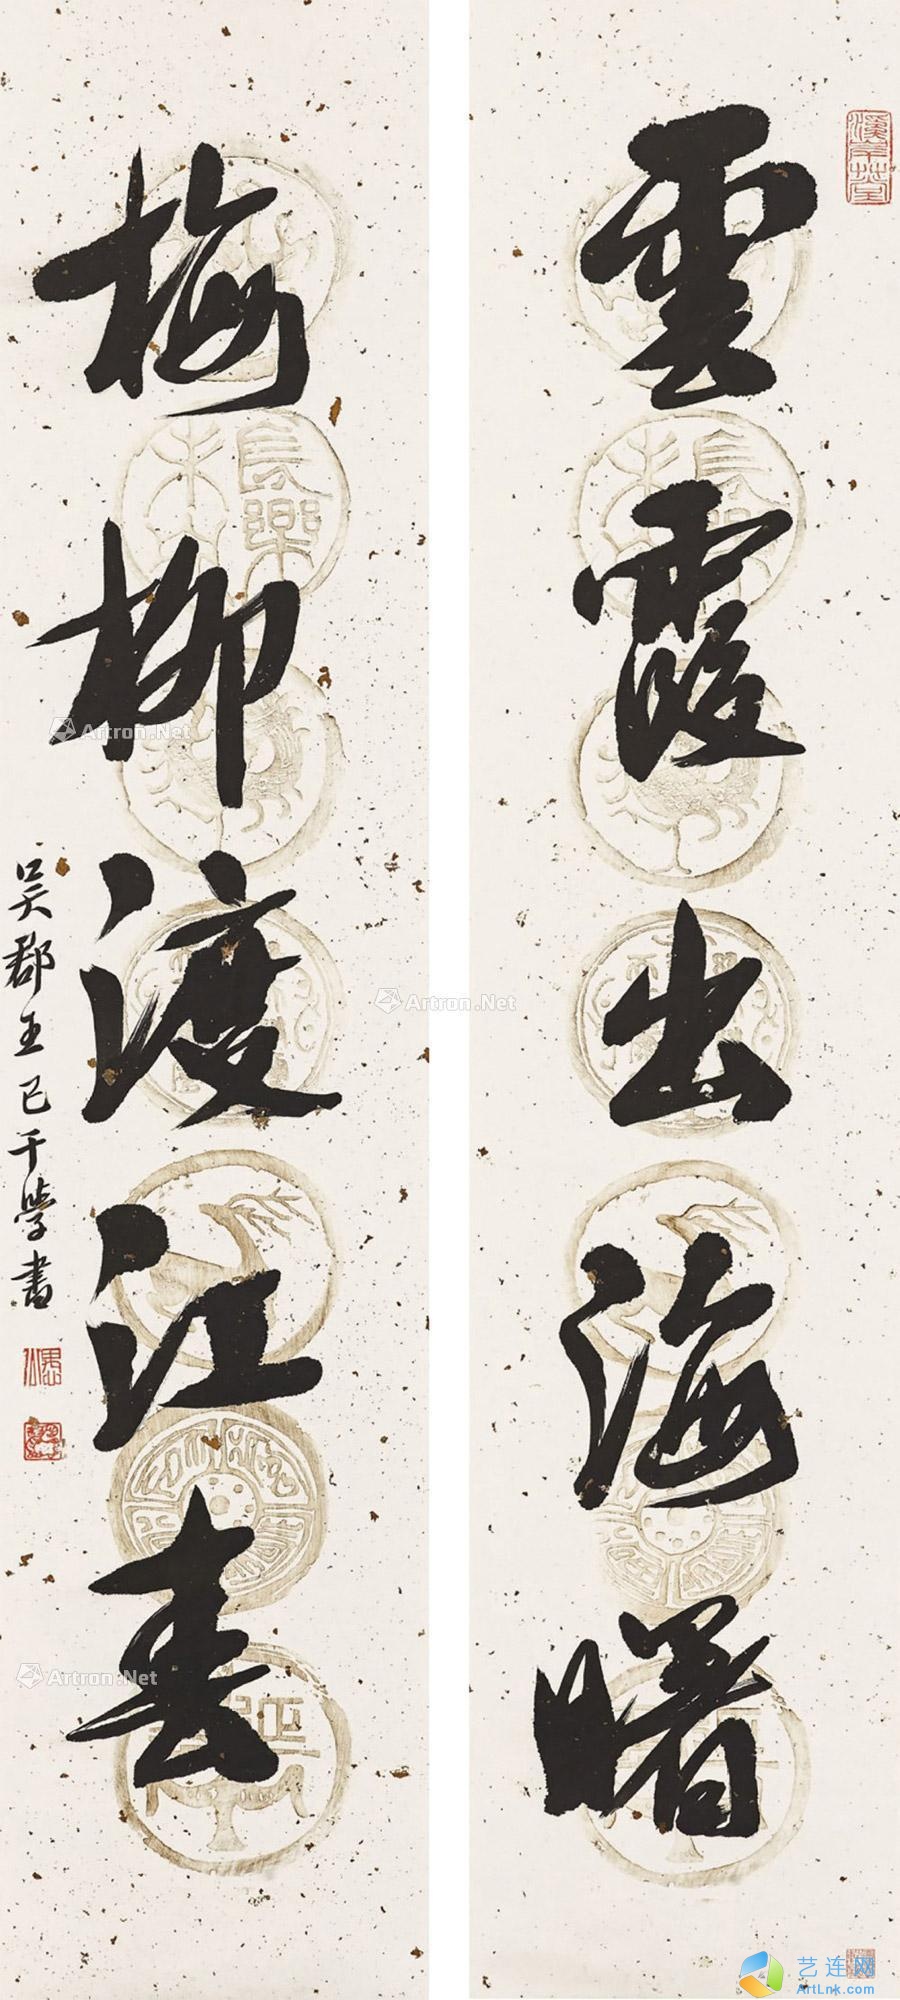 雲霞出海曙
梅柳渡江春
吳郡王己千學書
溪岸草堂
長樂
Artron.Net
Artron.Net
Artron.Net
艺连网
ArtLnk.Com